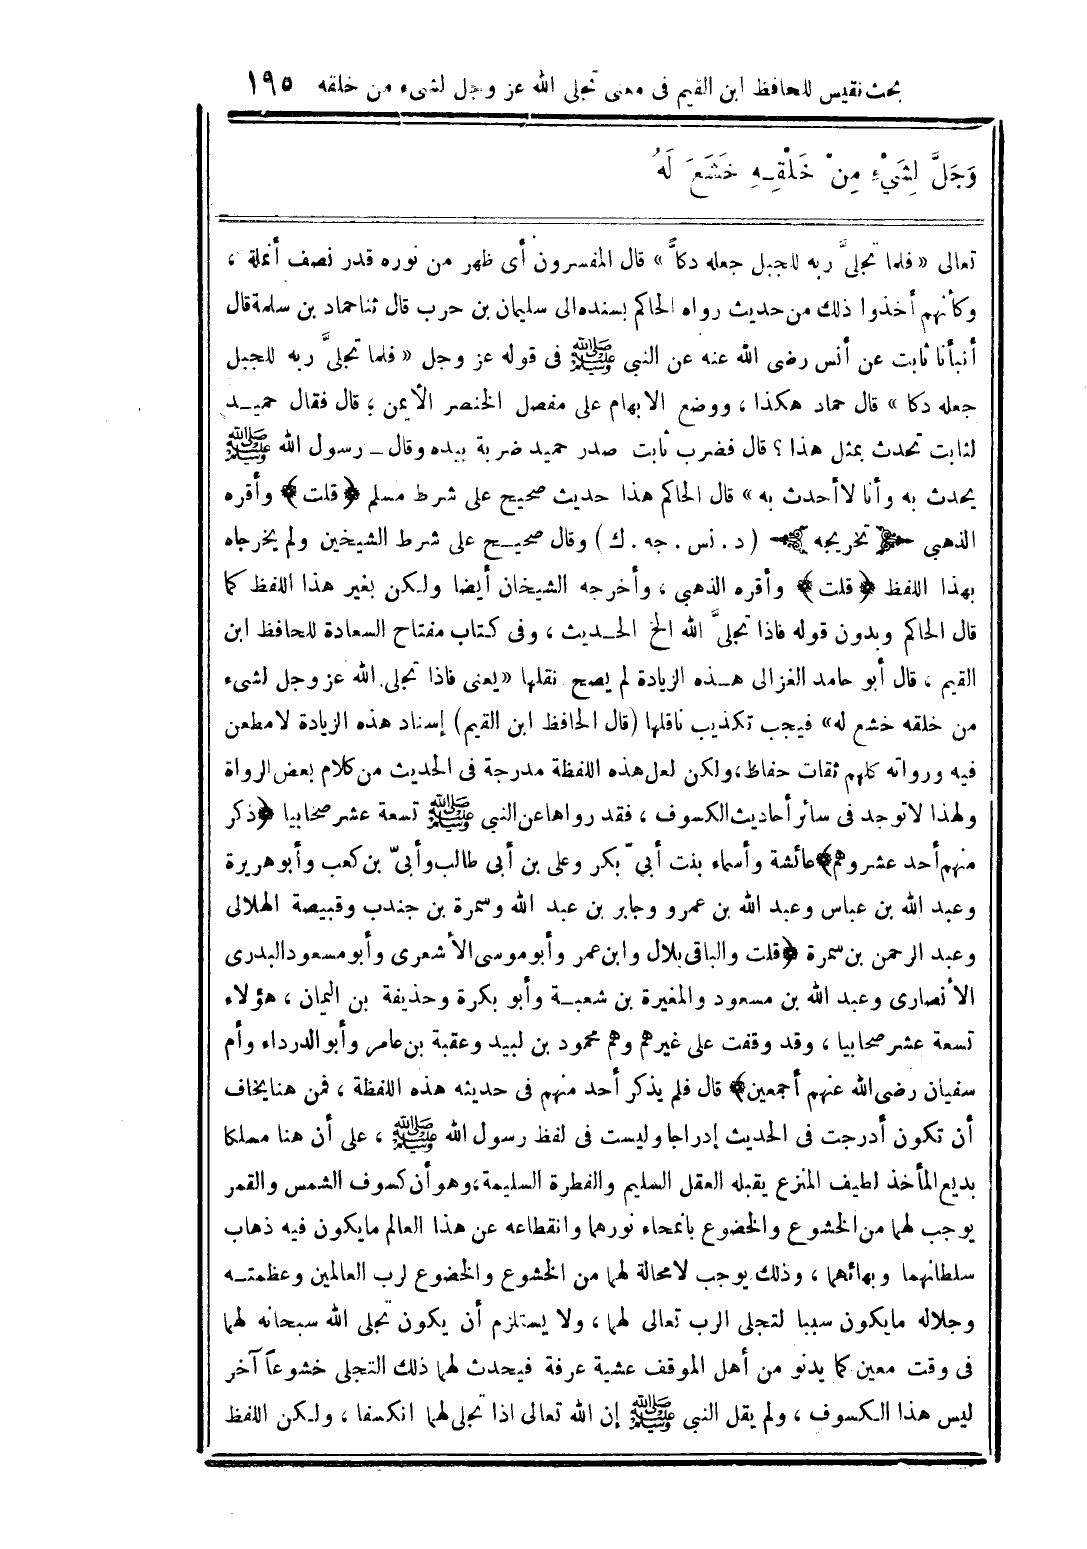 بحث نفيس للحافظ ابن القيم فى معنى تجلى الله عز وجل لشىء من خلقه ١٩٥
وَجَلَّ لِشَيْءٍ مِنْ خَلْقِهِ خَشَعَ لَهُ
تعالى «فلما تجلىَّ ربه للجبل جعله دكاًّ» قال المفسرون أى ظهر من نوره قدر نصف أنملة ،
وكأنهم أخذوا ذلك من حديث رواه الحاكم بسنده الى سليمان بن حرب قال ثنا حماد بن سلمة قال
أنبأنا ثابت عن أنس رضى الله عنه عن النبي ﷺ فى قوله عز وجل «فلما تجلىَّ ربه للجبل
جعله دكا» قال حماد هكذا ، ووضع الابهام على مفصل الخنصر الأيمن ؛ قال فقال حميـد
لثابت تحدث بمثل هذا ؟ قال فضرب ثابت صدر حميد ضربة بيده وقال ـ رسول الله ﷺ
يحدث به وأنا لا أحدث به» قال الحاكم هذا حديث صحيح على شرط مسلم ﴿قلت﴾ وأقره
الذهبى ﴿تخريجه﴾ (د . نس . جه . ك) وقال صحيـح على شرط الشيخين ولم يخرجاه
بهذا اللفظ ﴿قلت﴾ وأقره الذهبى ، وأخرجه الشيخان أيضا ولكن بغير هذا اللفظ كما
قال الحاكم وبدون قوله فاذا تجلىَّ الله الخ الحـديث ، وفى كتاب مفتاح السعادة للحافظ ابن
القيم ، قال أبو حامد الغزالى هـذه الزيادة لم يصح نقلها «يعنى فاذا تجلى الله عز وجل لشىء
من خلقه خشع له» فيجب تكذيب ناقلها (قال الحافظ ابن القيم) إسناد هذه الزيادة لا مطعن
فيه ورواته كلهم ثقات حفاظ، ولكن لعل هذه اللفظة مدرجة فى الحديث من كلام بعض الرواة
ولهذا لا توجد فى سائر أحاديث الكسوف ، فقد رواها عن النبي ﷺ تسعة عشر صحابيا ﴿ذكر
منهم أحد عشر وهم﴾ عائشة وأسماء بنت أبيّ بكر وعلى بن أبى طالب وأبىّ بن كعب وأبو هريرة
وعبد الله بن عباس وعبد الله بن عمرو وجابر بن عبد الله وسمرة بن جندب وقبيصة الهلالى
وعبد الرحمن بن سمرة ﴿قلت والباقى بلال وابن عمر وأبو موسى الأشعرى وأبو مسعود البدرى
الأنصارى وعبد الله بن مسعود والمغيرة بن شعبـة وأبو بكرة وحذيفة بن اليمان ، هؤلاء
تسعة عشر صحابيا ، وقد وقفت على غيرهم وهم محمود بن لبيد وعقبة بن عامر وأبو الدرداء وأم
سفيان رضى الله عنهم أجمعين﴾ قال فلم يذكر أحد منهم فى حديثه هذه اللفظة ، فمن هنا يخاف
أن تكون أدرجت فى الحديث إدراجا وليست فى لفظ رسول الله ﷺ ، على أن هنا مسلكا
بديع المأخذ لطيف المنزع يقبله العقل السليم والفطرة السليمة ، وهو أن كسوف الشمس والقمر
يوجب لهما من الخشوع والخضوع بانمحاء نورهما وانقطاعه عن هذا العالم ما يكون فيه ذهاب
سلطانهما وبهائهما ، وذلك يوجب لا محالة لهما من الخشوع والخضوع لرب العالمين وعظمتـه
وجلاله ما يكون سببا لتجلى الرب تعالى لهما ، ولا يستلزم أن يكون تجلى الله سبحانه لهما
فى وقت معين كما يدنو من أهل الموقف عشية عرفة فيحدث لهما ذلك التجلى خشوعاً آخر
ليس هذا الكسوف ، ولم يقل النبي ﷺ إن الله تعالى اذا تجلى لهما انكسفا ، ولكن اللفظ